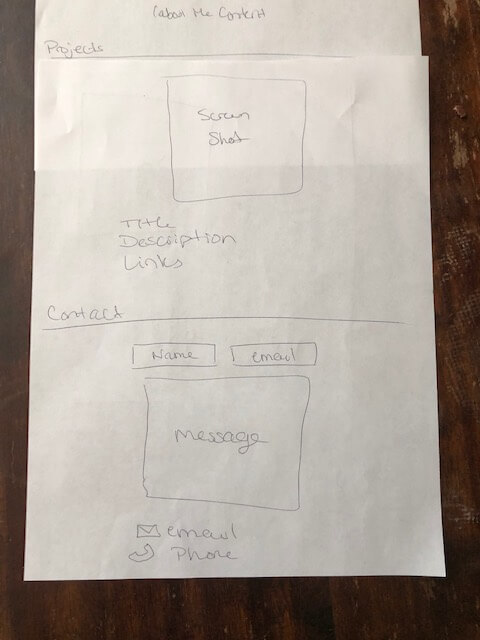 (about Me Content
Projects
Screen
Shot
Title
Description
Links
Contact
Name email
Message
email
Phone